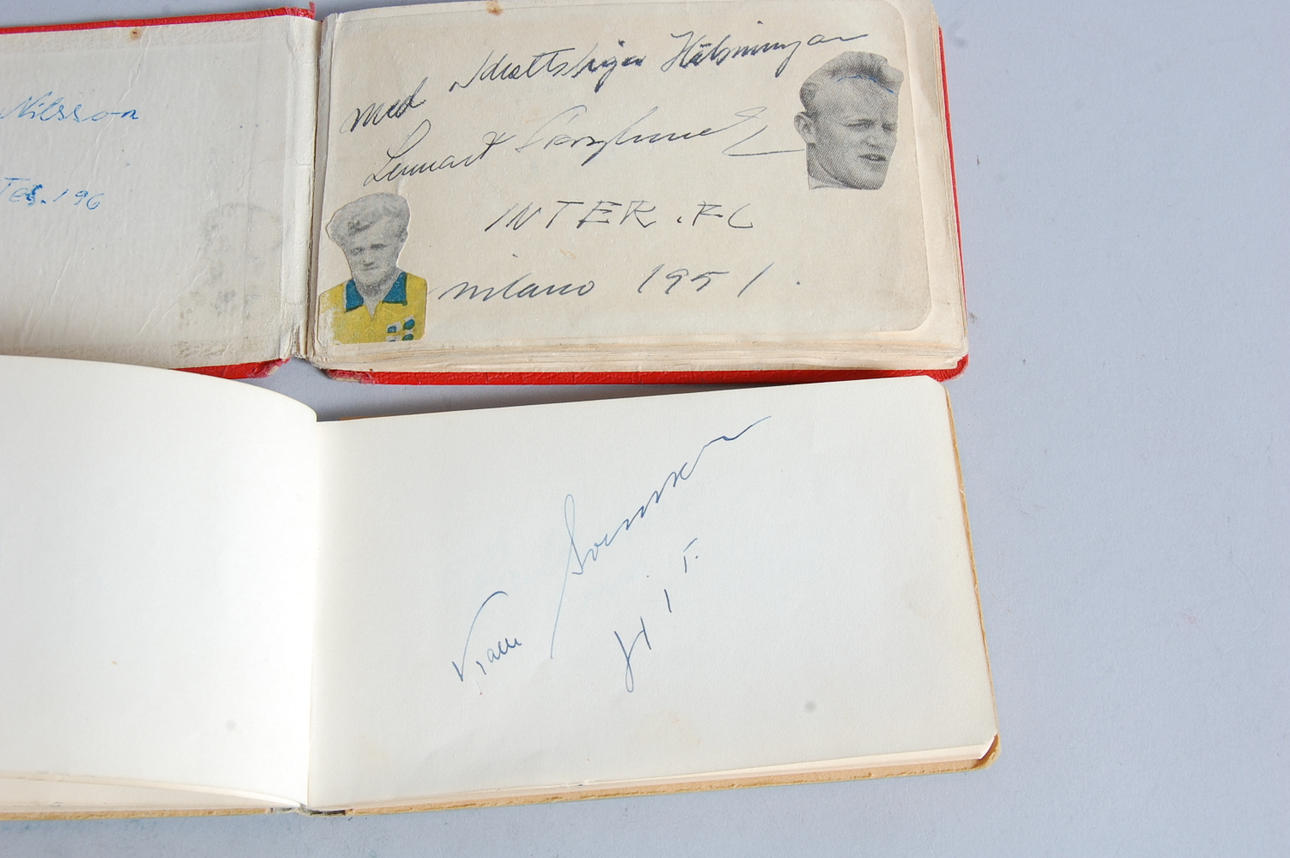 Nilsson
196
med Idrottsliga Hälsningar
Lennart Skoglund
INTER. FC
milano 1951.
Kalle Svensson
H.I.F.